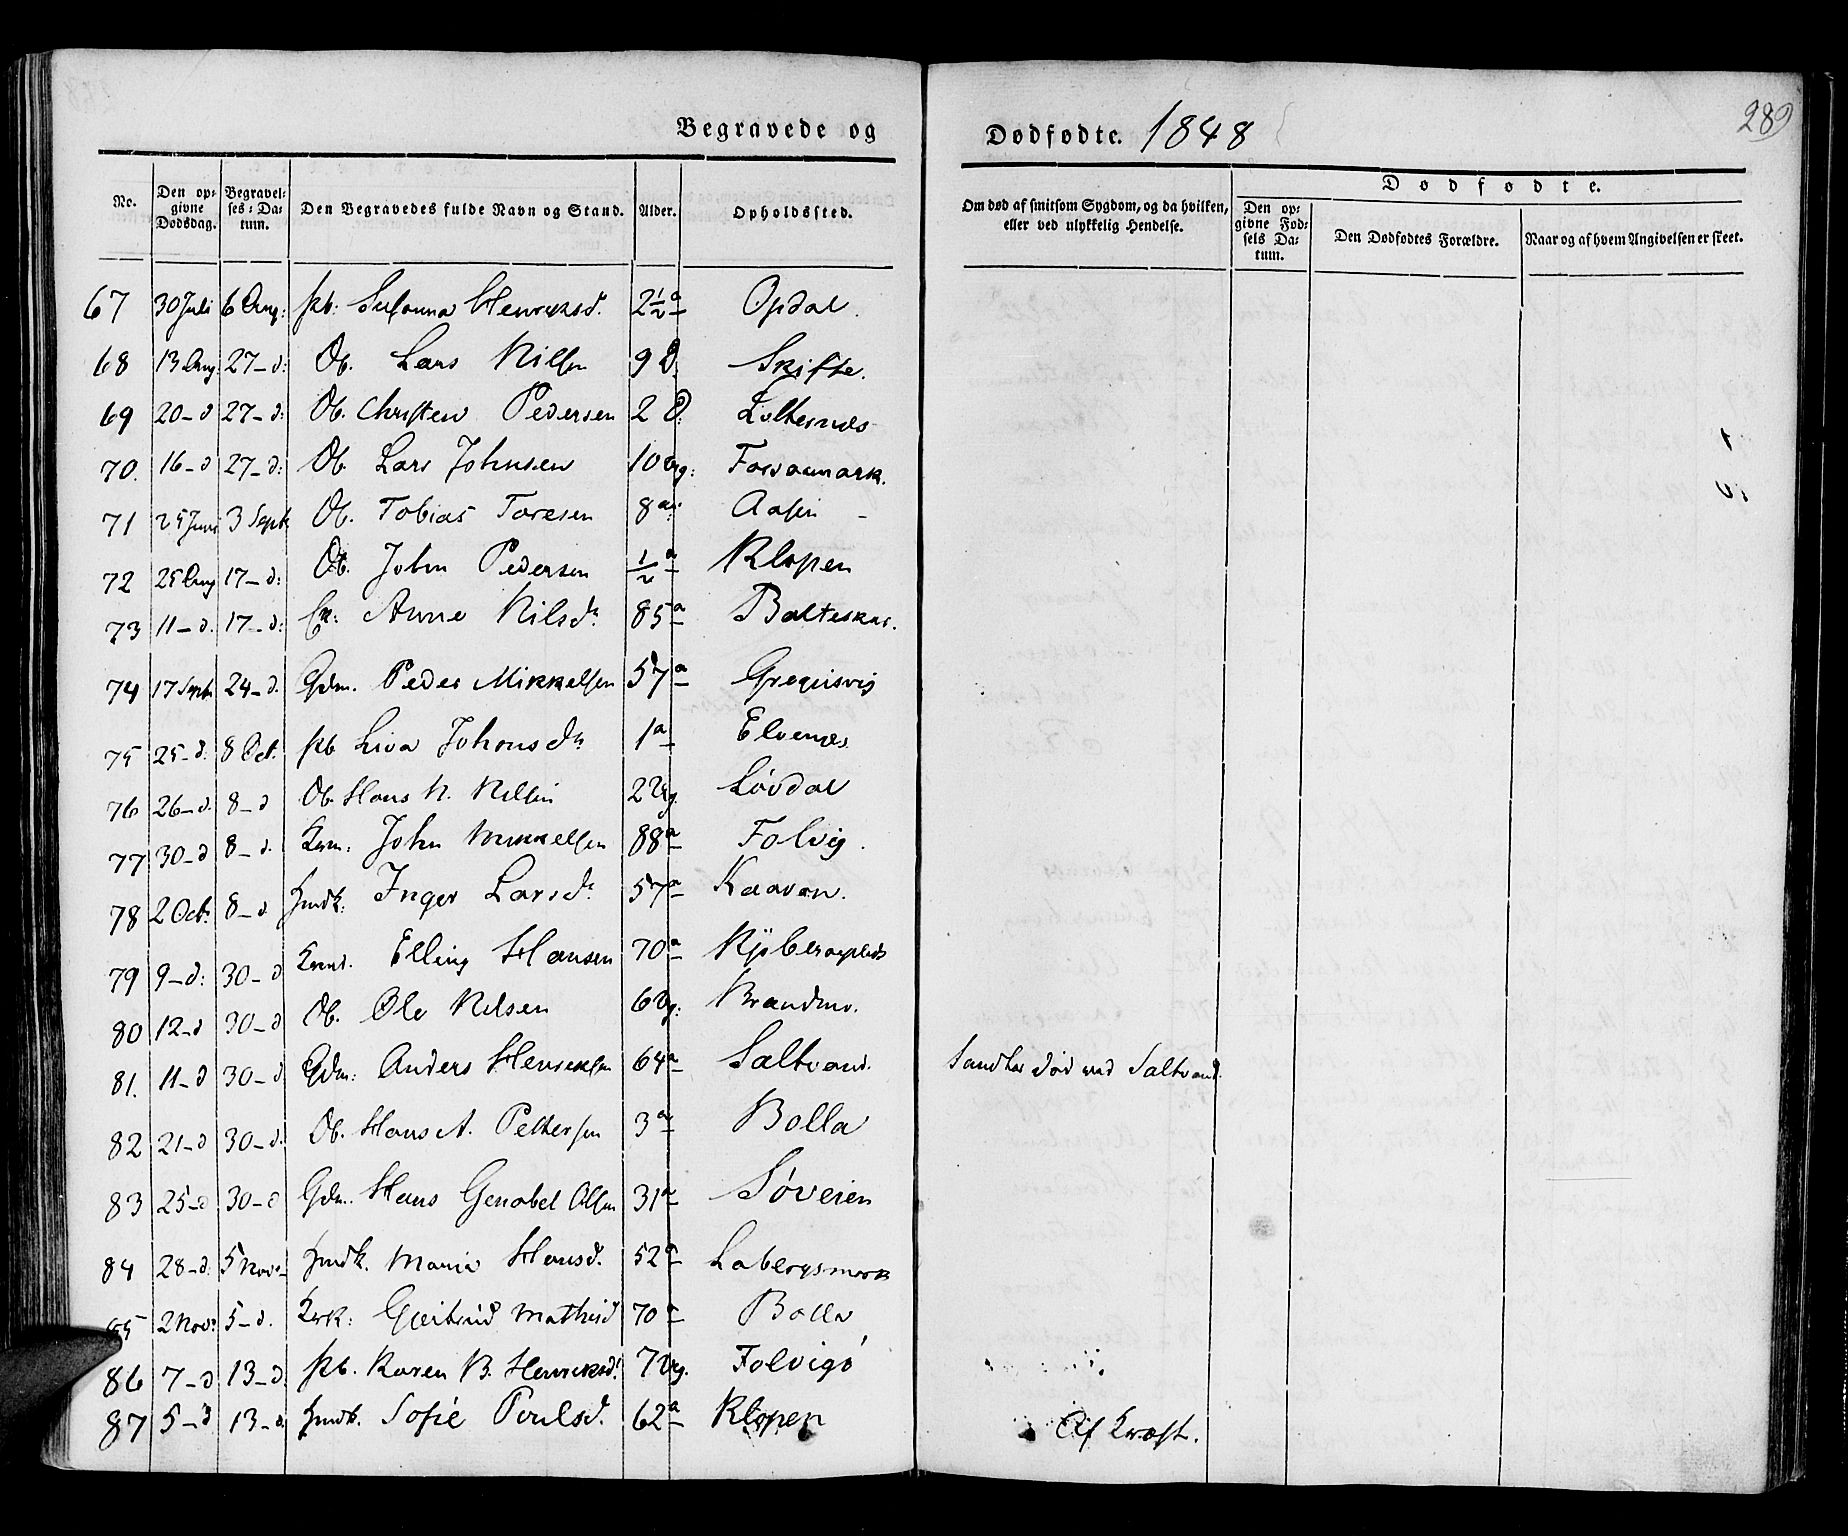 Begravede og Dødfødte. 1848
289
No. Den opgivne Dødsdag. Begravelses-Datum. Den Begravedes fulde Navn og Stand. Alder. Opholdssted. Om død af smitsom Sygdom, og da hvilken, eller ved ulykkelig Hendelse. Dødfødte. Den opgivne Fødsels Datum. Den Dødfødtes Forældre. Naar og af hvem Angivelsen er skeet.
67 30 Juli 6 Aug: pb: Susanna Henriksd. 2½ a Opdal.
68 13 Aug: 27-d: Ob. Lars Nilsen 9 D. Skifte.
69 20-d 27-d: Ob. Christen Pedersen 2 D: Loltesnes
70. 16-d 27-d: Ob. Lars Johnsen 10 Ug: Forsaamark.
71 25 Juni 3 Septb Ob. Tobias Toresen 8 a Aasen
72 25 Aug 17-d: Ob. John Pedersen ½ a Klopen
73 11-d. 17-d: Anne Nilsd. 85 a Balteskar.
74 17 Septb 24-d. Gdm. Peder Mikkelsen 57 a Greguisvig
75 25-d. 8 Oct. pb Liva Johansdt 1 a Elvenes
76 26-d. 8-d Ob. Hans N. Nilsen 2 Ug. Løvdal
77 30-d 8-d. Krm: John Mikkelsen 88 a Folvig.
78 2 Octb. 8-d Hmdk: Inger Larsd. 57 a Kaavan.
79 9-d: 30-d Elling Hansen 70 a
80 12-d 30-d Ob. Ole Nilsen 6 Ug: Brandmo.
81. 11-d 30-d Gdm: Anders Henriksen 64 a Saltvand. død ved Saltvand.
82 21-d 30-d. Ob. Hans A. Pettersen 3 a Bolla
83 25-d 30-d Gdm. Hans Genabel Olsen 31 a Søveien
84 28-d. 5 Nov. Hmdk. Maria Hansd. 52 a Labergsmark
85 2 Nov. 5-d. Krk: Gjertrud Mathisd 70 a Bolla
86 7-d 13-d. pb. Karen B. Henriksd. 7 Ug. Folvigø
87 5-d 13-d. Hmdk. Sofie Poulsd. 62 a Klopen Af Kræft.